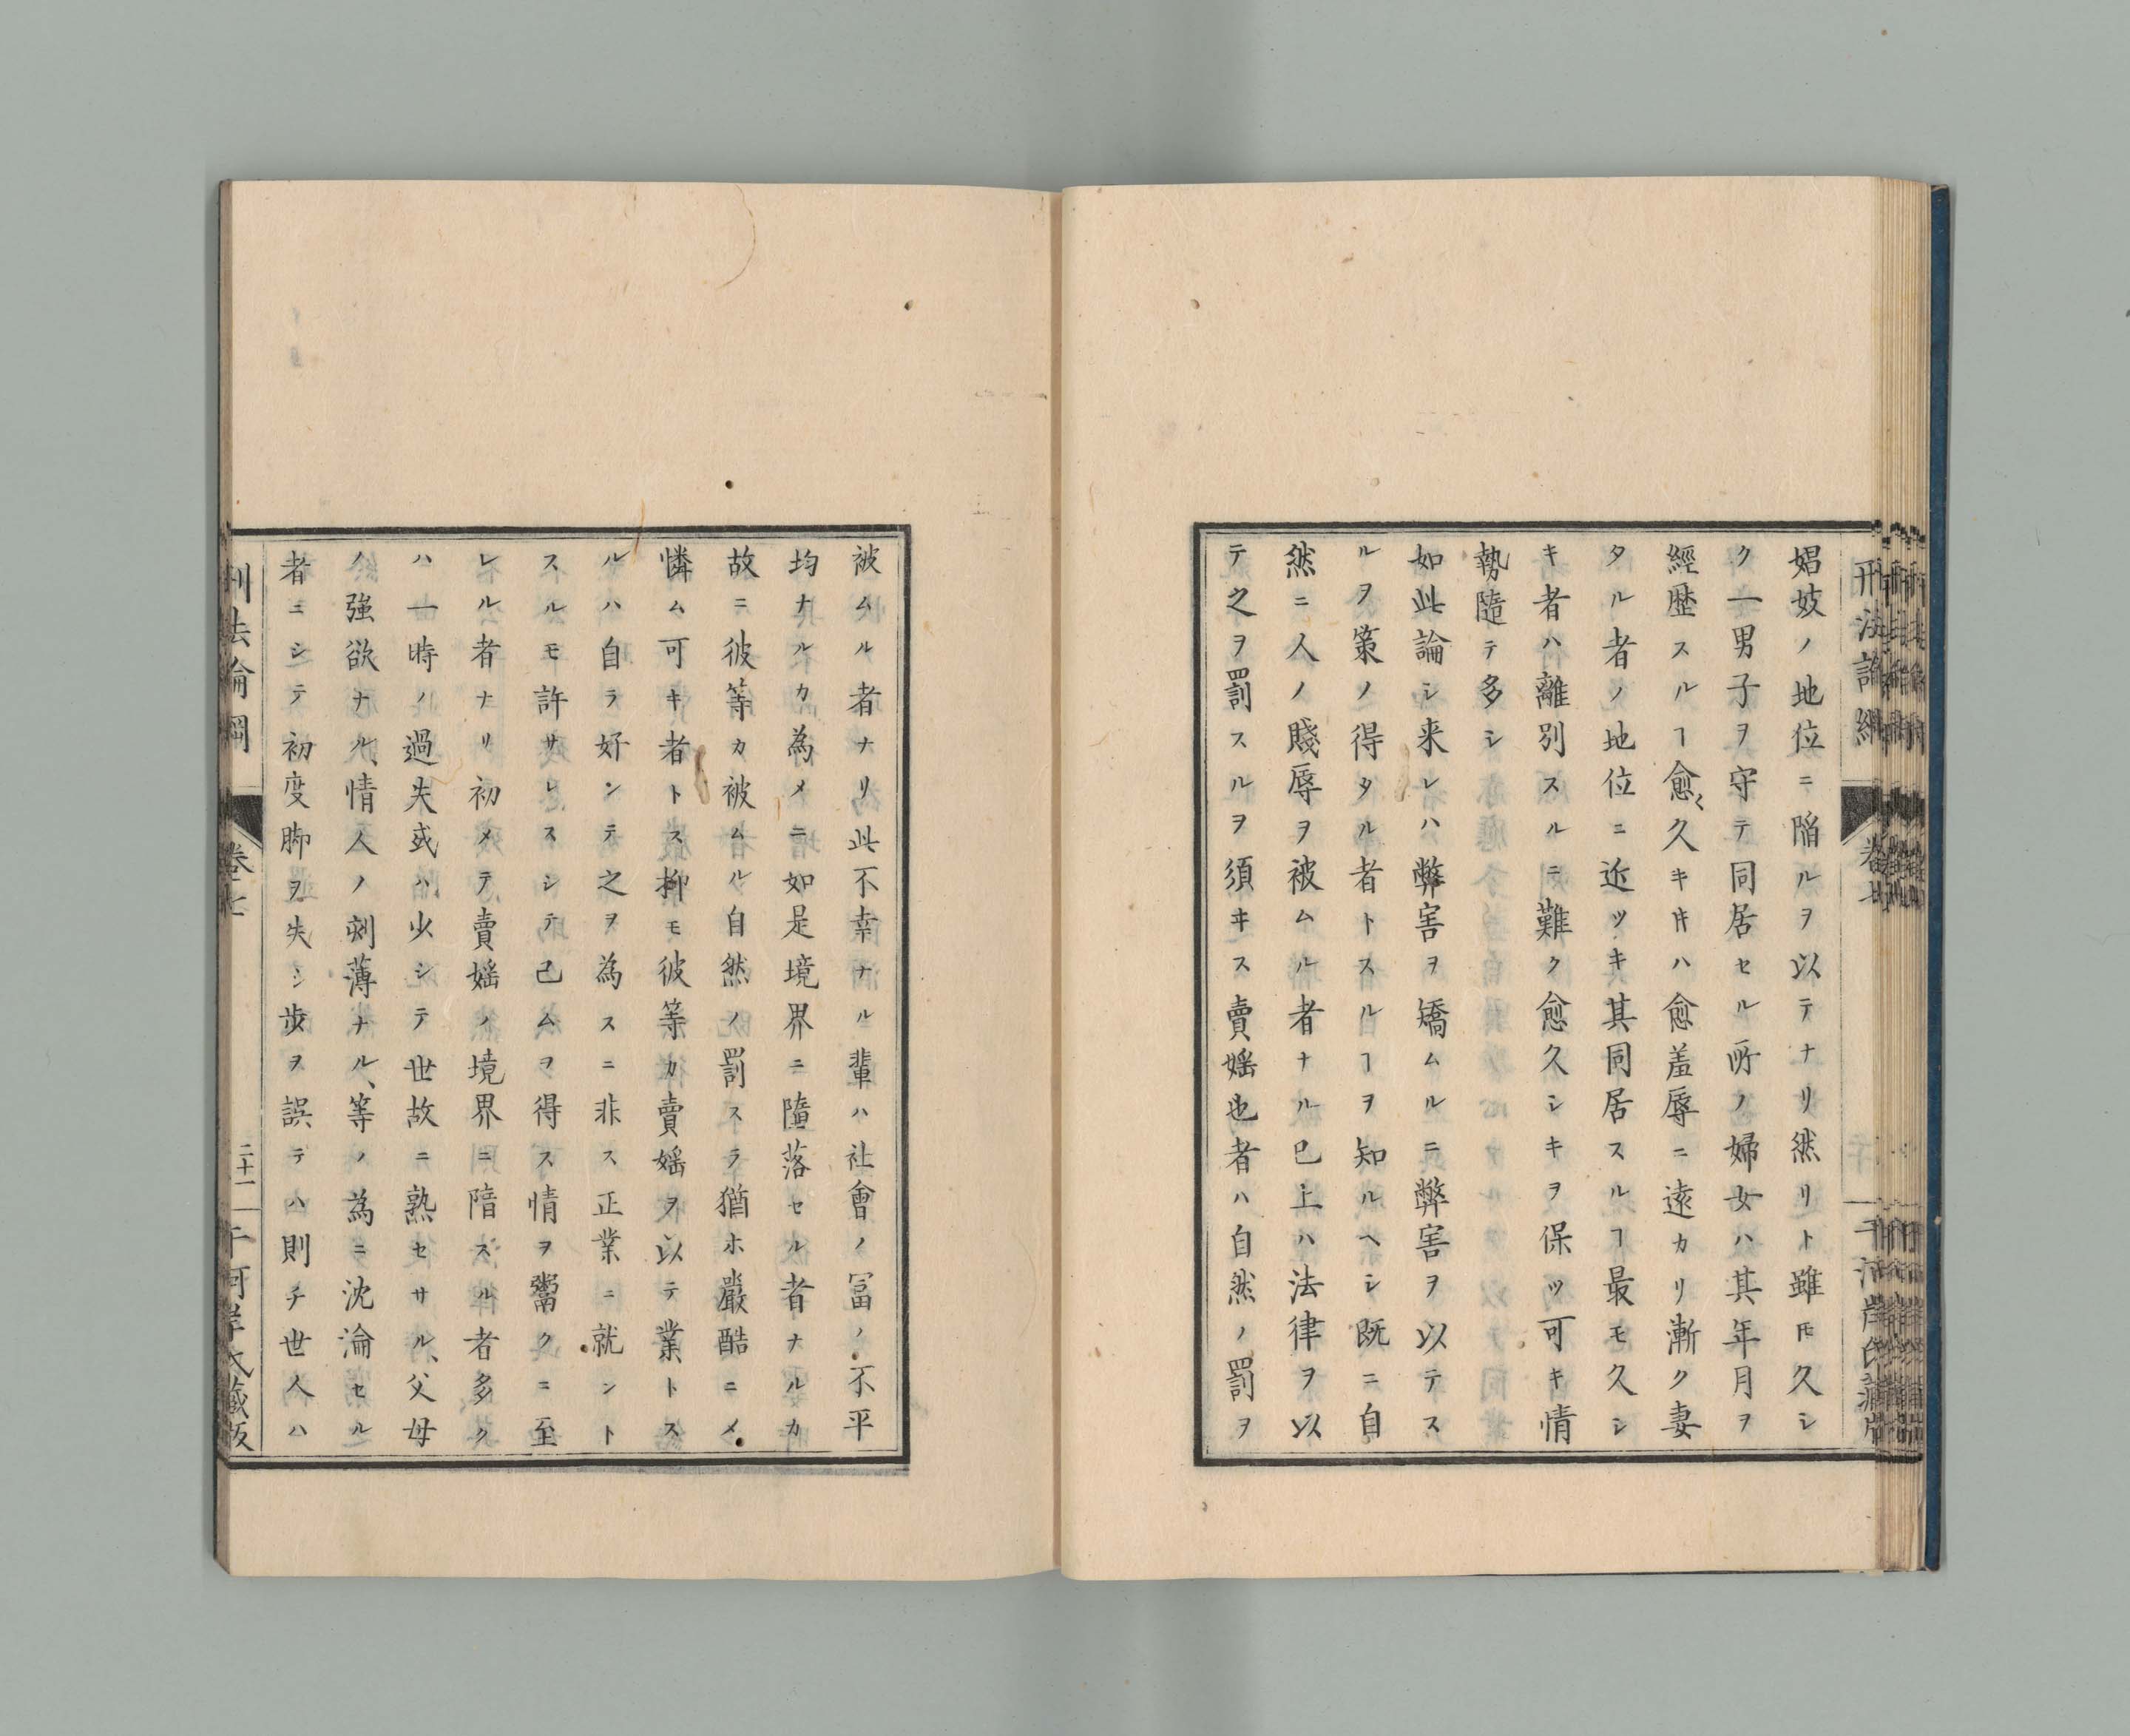 刑法論綱
卷七
千河岸氏藏版
娼妓ノ地位ニ陥ルヲ以テナリ然リト雖𪜈久シ
ク一男子ヲ守テ同居セル所ノ婦女ハ其年月ヲ
經歴スルヿ愈〻久キキハ愈羞辱ニ遠カリ漸ク妻
タル者ノ地位ニ近ツキ其同居スルヿ最モ久シ
キ者ハ離別スルニ難ク愈久シキヲ保ツ可キ情
勢隨テ多シ
如此論シ来レハ弊害ヲ矯ムルニ弊害ヲ以テス
ルヲ策ノ得タル者トスルヿヲ知ルヘシ既ニ自
然ニ人ノ賤辱ヲ被ムル者ナル已上ハ法律ヲ以
テ之ヲ罰スルヲ須ヰス賣婬也者ハ自然ノ罰ヲ
被ムル者ナリ此不幸ナル輩ハ社會ノ冨ノ不平
均ナルカ為メニ如是境界ニ墮落セル者ナルカ
故ニ彼等カ被ムル自然ノ罰スラ猶ホ嚴酷ニメ
憐ム可キ者トス抑モ彼等カ賣婬ヲ以テ業トス
ルハ自ラ好ンテ之ヲ為スニ非ス正業ニ就ント
スルモ許サレスシテ已ムヲ得ス情ヲ鬻クニ至
レル者ナリ初メテ賣婬ノ境界ニ陥スル者多ク
ハ一時ノ過失或ハ少シテ世故ニ熟セサル、父母
ノ強欲ナル、情人ノ刻薄ナル、等ノ為ニ沈淪セル
者ニシテ初度脚ヲ失シ歩ヲ誤テハ則チ世人ハ
刑法論綱
卷七
二十一
千河岸氏藏版